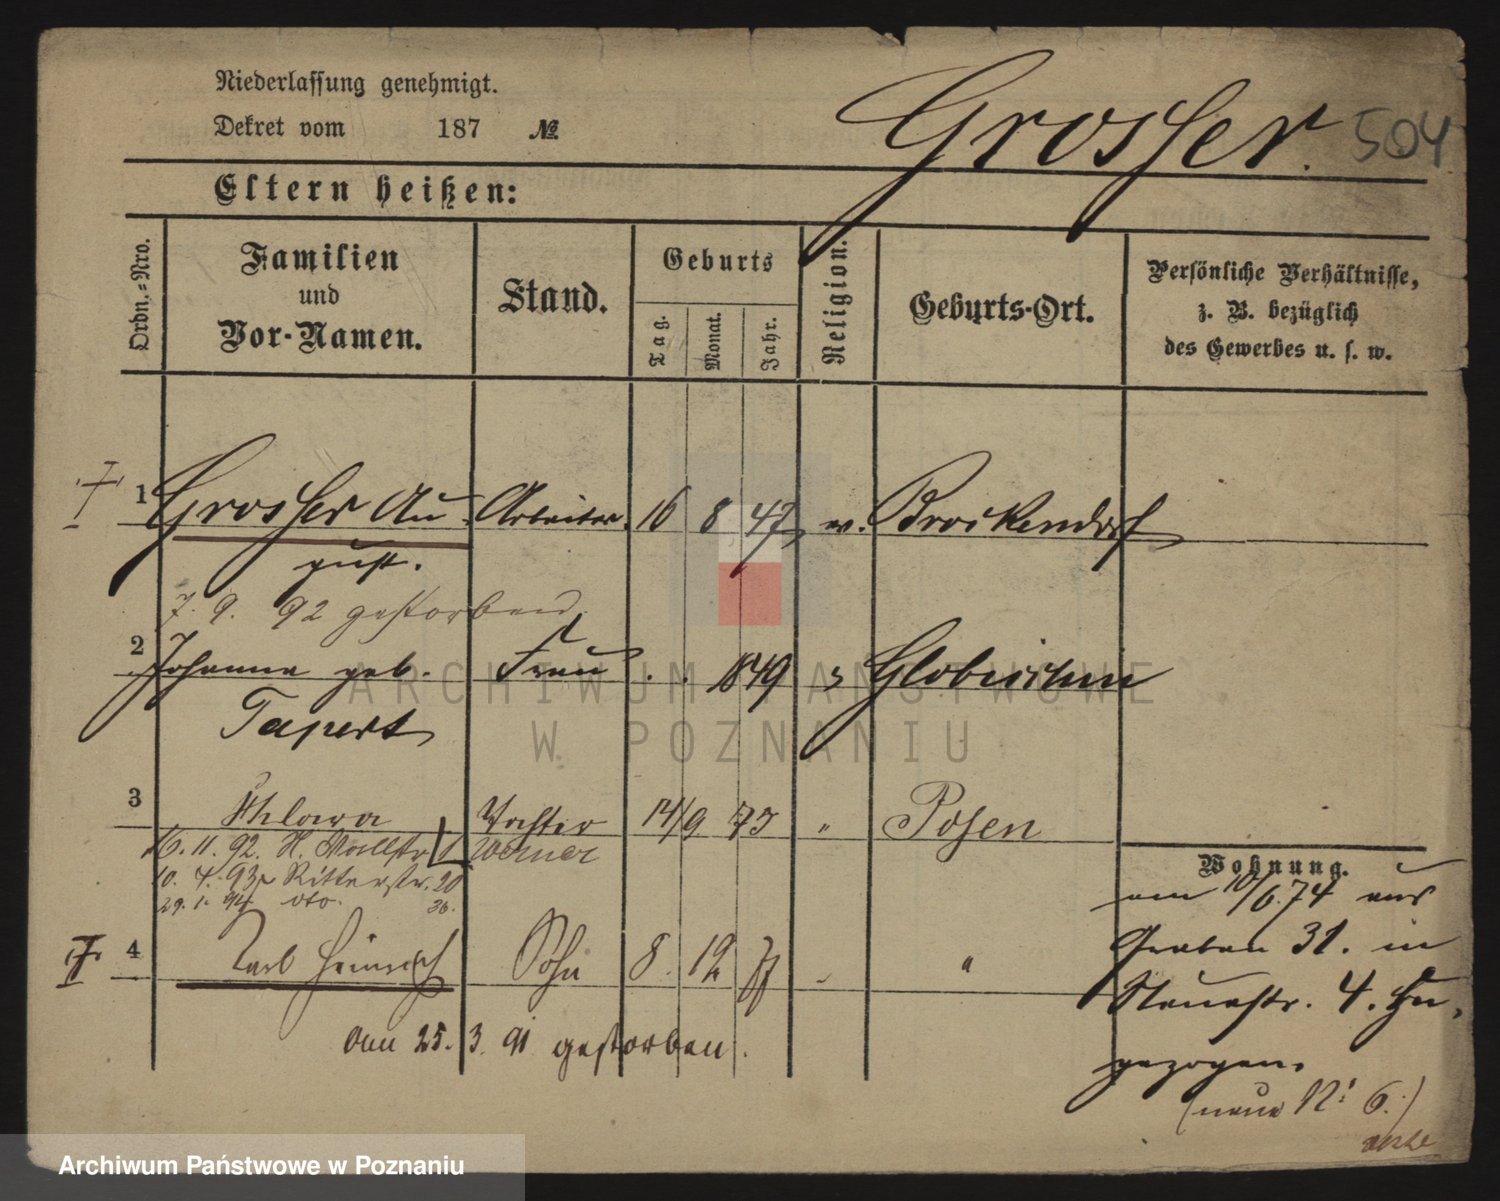 Niederlassung genehmigt.
Dekret vom 187 №
Grosser. 504
Eltern heißen:
Ordn.=Nro.
Familien
und
Vor-Namen.
Stand.
Geburts
Tag.
Monat.
Jahr.
Religion.
Geburts-Ort.
Persönliche Verhältnisse,
z. B. bezüglich
des Gewerbes u. s. w.
1 Grosser Au- Arbeiter. 16 8 47 ev. Brockendorf
gust.
7. 9. 92 gestorben
2 Johanna geb. Frau . . 1849
Tapert
3 Khlara Tochter 14/9 73 " Posen
16. 11. 92. H. Wallstr. 1 Werner
10. 4. 93 Ritterstr. 20
29. 1. 94 dto. 36.
4 Karl Heinrich Sohn 8. 12 77 "
am 25. 3. 91 gestorben.
Wohnung.
am 10/6.74 aus
Graben 31. in
4. zu-
gezogen.
(neue N: 6.)
ARCHIWUM PAŃSTWOWE
W POZNANIU
Archiwum Państwowe w Poznaniu